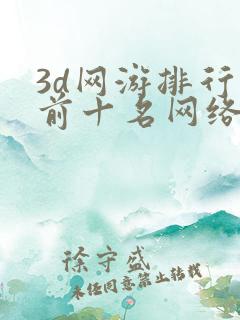 3d网游排行
前十名网络
徐守盛
未经同意禁止转载